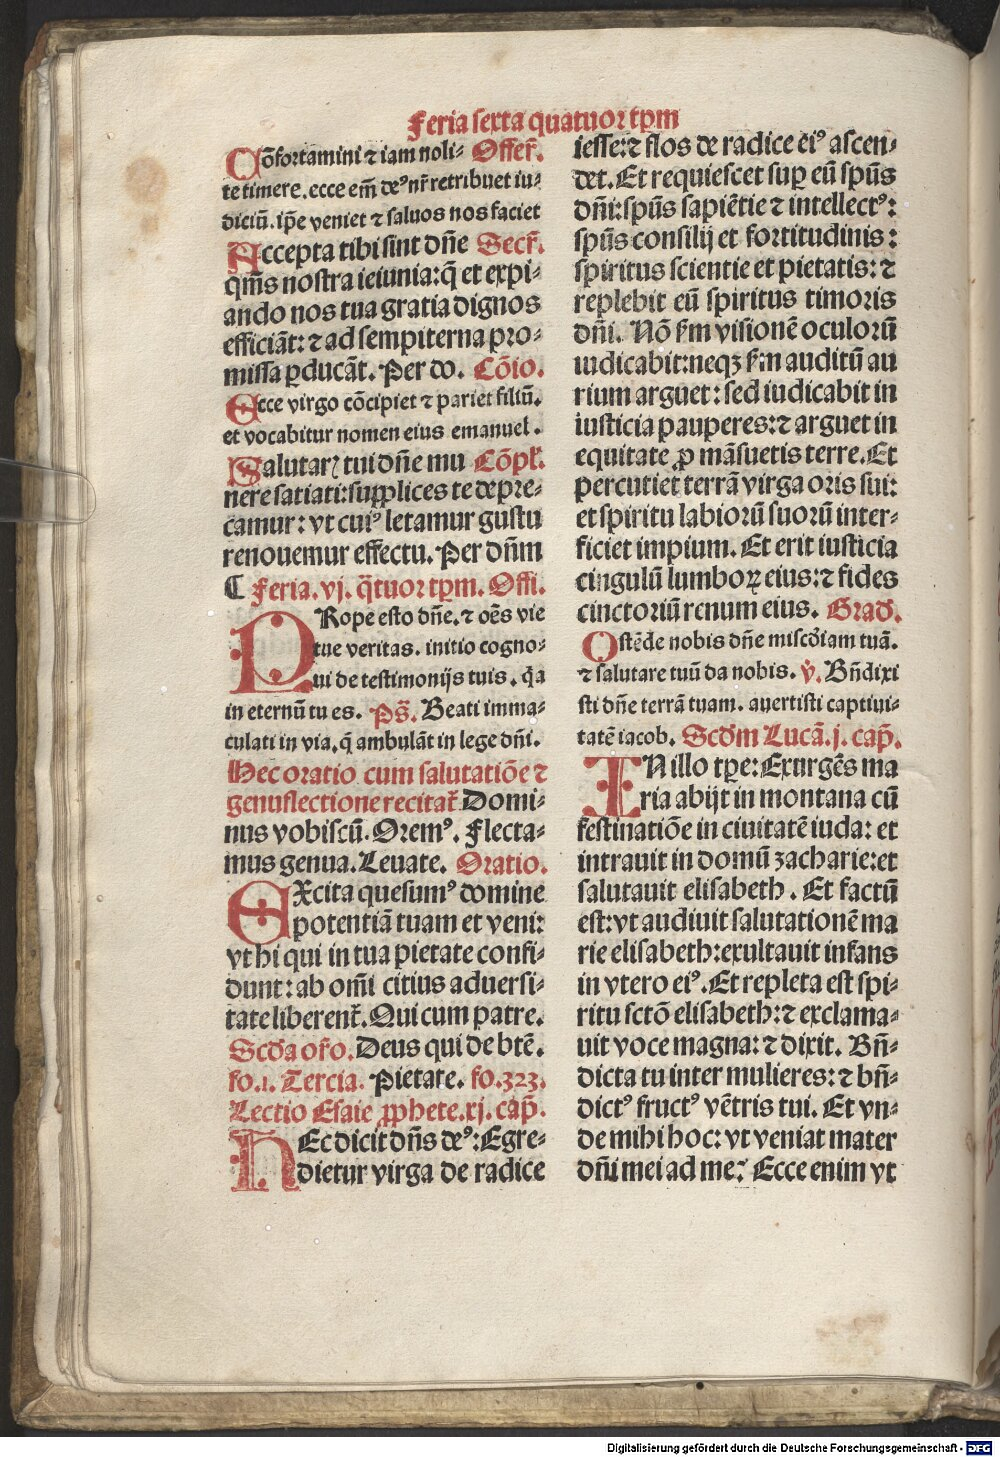 Feria sexta quatuor tp̄m
Cōfortamini ⁊ iam noli⸗ Offer̄.
te timere. ecce em̄ deꝰ nr̄ retribuet iu⸗
diciū. ip̄e veniet ⁊ saluos nos faciet
Accepta tibi sint dn̄e Secr̄.
qm̄s nostra ieiunia: q̄ et expi⸗
ando nos tua gratia dignos
efficiāt: ⁊ ad sempiterna pro⸗
missa ꝑducāt. Per do. Cōio.
Ecce virgo cōcipiet ⁊ pariet filiū.
et vocabitur nomen eius emanuel.
Salutarꝭ tui dn̄e mu Cōpl̄.
nere satiati: supplices te depre⸗
camur: vt cuiꝰ letamur gustu
renouemur effectu. Per dn̄m
¶ Feria. vj. q̄tuor tp̄m. Offi.
PRope esto dn̄e. ⁊ oēs vie
tue veritas. initio cogno⸗
ui de testimonijs tuis. q̄a
in eternū tu es. Ps̄. Beati imma⸗
culati in via. q̄ ambulāt in lege dn̄i.
Hec oratio cum salutatiōe ⁊
genuflectione recitat̄. Domi⸗
nus vobiscū. Oremꝰ. Flecta⸗
mus genua. Leuate. Oratio.
EXcita quesumꝰ domine
potentiā tuam et veni:
vt hi qui in tua pietate confi⸗
dunt: ab om̄i citius aduersi⸗
tate liberent̄. Qui cum patre.
Scd̄a or̄o. Deus qui de btē.
fo. 1. Tercia. Pietate. fo. 323.
Lectio Esaie ꝓphete. xj. cap̄.
HEc dicit dn̄s deꝰ: Egre⸗
dietur virga de radice
iesse: ⁊ flos de radice eiꝰ ascen⸗
det. Et requiescet suꝑ eū sp̄us
dn̄i: sp̄us sapiētie ⁊ intellectꝰ:
sp̄us consilij et fortitudinis:
spiritus scientie et pietatis: ⁊
replebit eū spiritus timoris
dn̄i. Nō scd̄m visionē oculorū
iudicabit: neqꝫ scd̄m auditū au
rium arguet: sed iudicabit in
iusticia pauperes: ⁊ arguet in
equitate ꝓ māsuetis terre. Et
percutiet terrā virga oris sui:
et spiritu labiorū suorū inter⸗
ficiet impium. Et erit iusticia
cingulū lumboꝝ eius: ⁊ fides
cinctoriū renum eius. Grad.
Ostēde nobis dn̄e misc̄diam tuā.
⁊ salutare tuū da nobis. ℣. Bn̄dixi
sti dn̄e terrā tuam. auertisti captiui⸗
tatē iacob. Scd̄m Lucā. j. cap̄.
IN illo tp̄e: Exurgēs ma
ria abijt in montana cū
festinatiōe in ciuitatē iuda: et
intrauit in domū zacharie: et
salutauit elisabeth. Et factū
est: vt audiuit salutationē ma
rie elisabeth: exultauit infans
in vtero eiꝰ. Et repleta est spi⸗
ritu sctō elisabeth: ⁊ exclama⸗
uit voce magna: ⁊ dixit. Bn̄⸗
dicta tu inter mulieres: ⁊ bn̄⸗
dictꝰ fructꝰ vētris tui. Et vn⸗
de mihi hoc: vt veniat mater
dn̄i mei ad me? Ecce enim vt
Digitalisierung gefördert durch die Deutsche Forschungsgemeinschaft - DFG